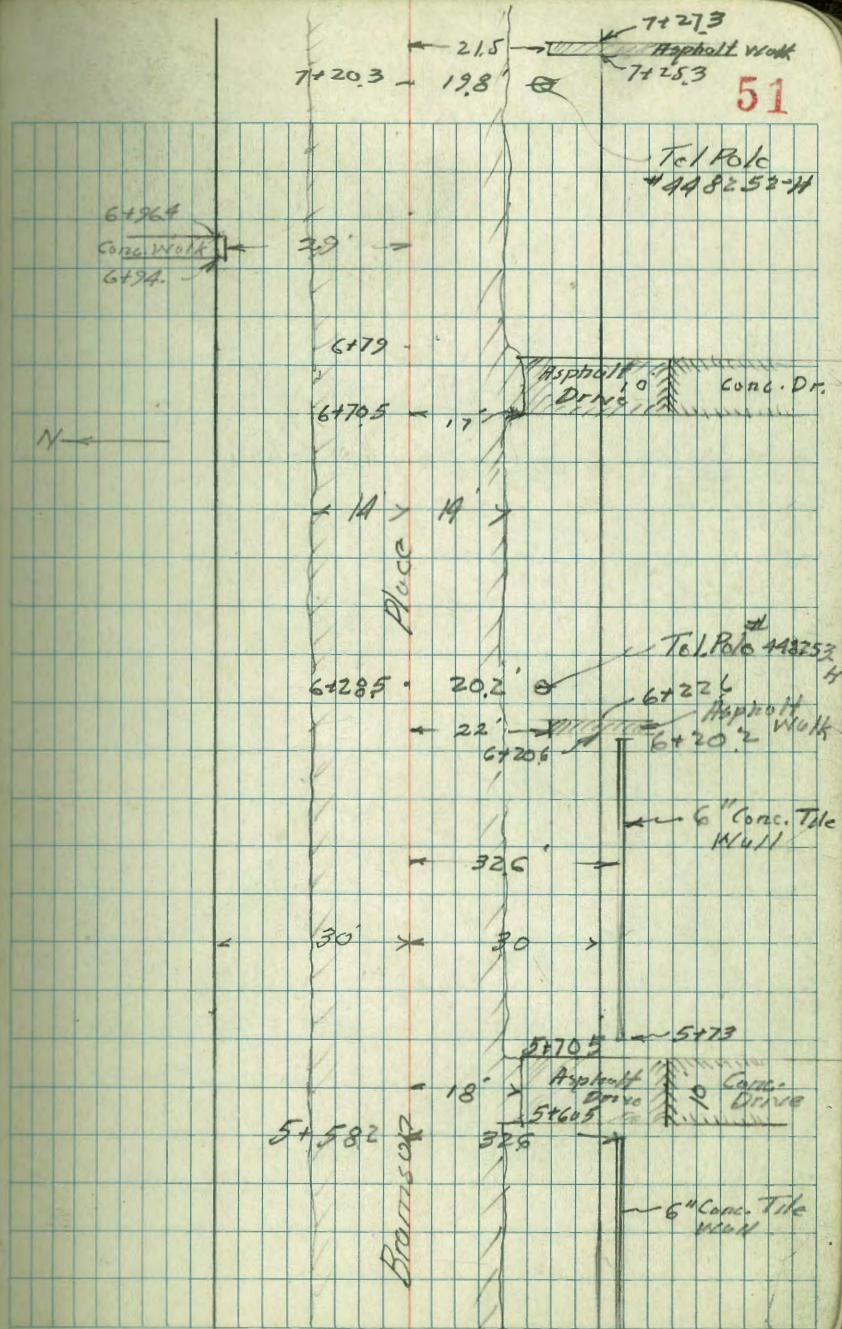 7+27.3
21.5
Asphalt Walk
7+25.3
7+20.3
19.8'
51
Tel Pole
#448252-H
6+96.4
Conc. Walk
29'
6+94.
6+79
Asphalt
Drive
10'
Conc. Dr.
6+70.5
17'
N
14'
14'
Place
Tel. Pole # 448253
H
6+28.5
20.2'
6+22.6
Asphalt
Walk
22'
6+20.6
6+20.2
6" Conc. Tile
Wall
32.6'
30'
30
5+73
5+70.5
Asphalt
Drive
18'
10
Conc.
Drive
5+60.5
5+58.2
32.6
6" Conc. Tile
Wall
Bramson